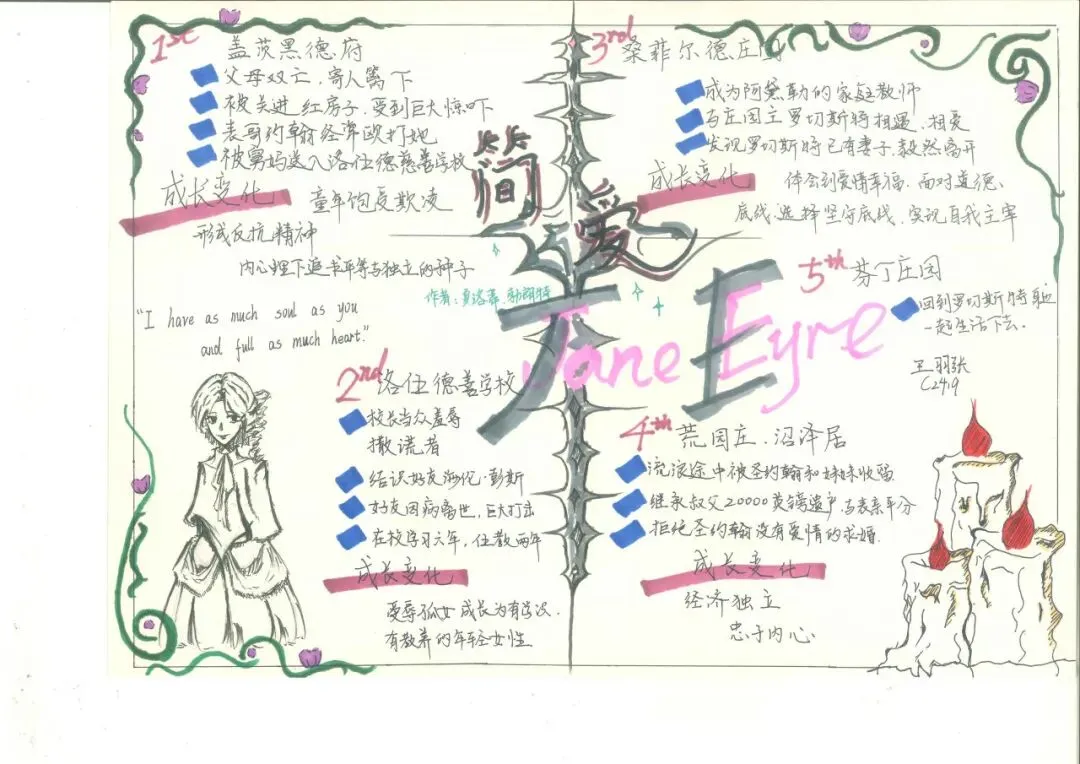 1st 盖茨黑德府
父母双亡，寄人篱下
被关进红房子，受到巨大惊吓
表哥约翰经常殴打她
被舅妈送入洛伍德慈善学校
成长变化
童年饱受欺凌
形成反抗精神
内心埋下追求平等与独立的种子
"I have as much soul as you
and full as much heart."
2nd 洛伍德慈善学校
校长当众羞辱
撒谎者
结识好友海伦·彭斯
好友因病离世，巨大打击
在校学习六年，任教两年
成长变化
受辱孤女成长为有学识.
有教养的年轻女性
简
爱
作者：夏洛蒂.勃朗特
Jane Eyre
3rd 桑菲尔德庄园
成为阿黛勒的家庭教师
与庄园主罗切斯特相遇，相爱
发现罗切斯特已有妻子，毅然离开
成长变化
体会到爱情幸福，面对道德、
底线，选择坚守底线，实现自我主宰
4th 荒园庄.沼泽居
流浪途中被圣约翰和妹妹收留
继承叔父20000英镑遗产，与表亲平分
拒绝圣约翰没有爱情的求婚.
成长变化
经济独立
忠于内心
5th 芬丁庄园
回到罗切斯特身边
一起生活下去.
王羽张
C2419